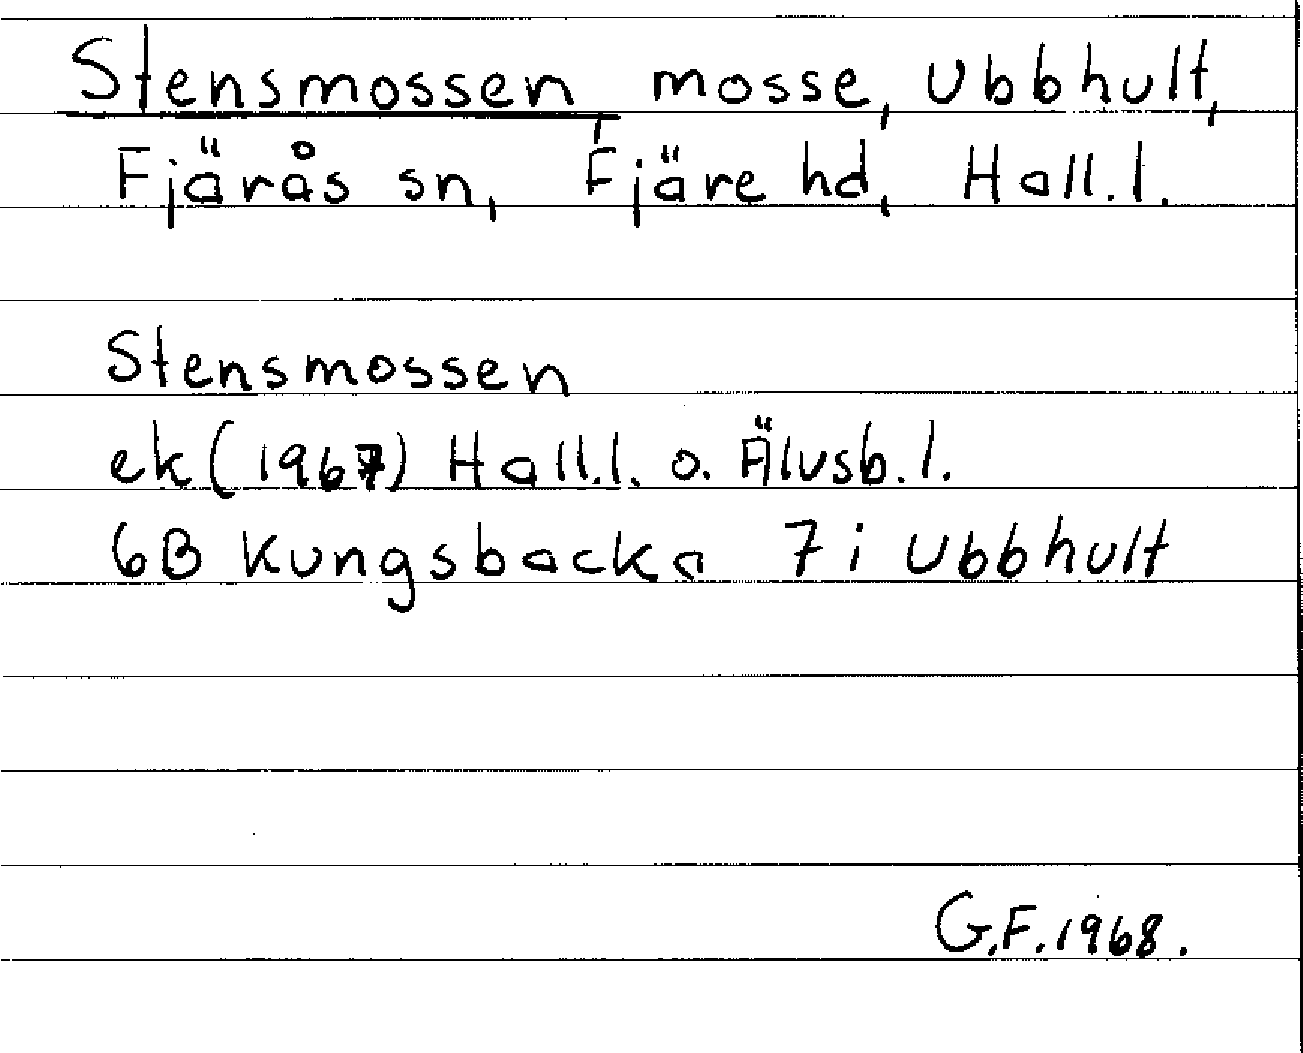 Stensmossen mosse, Ubbhult,
Fjärås sn, Fjäre hd, Hall.l.
Stensmossen
ek (1967) Hall.l. o. Älvsb.l.
6B Kungsbacka 7i Ubbhult
G.F. 1968.